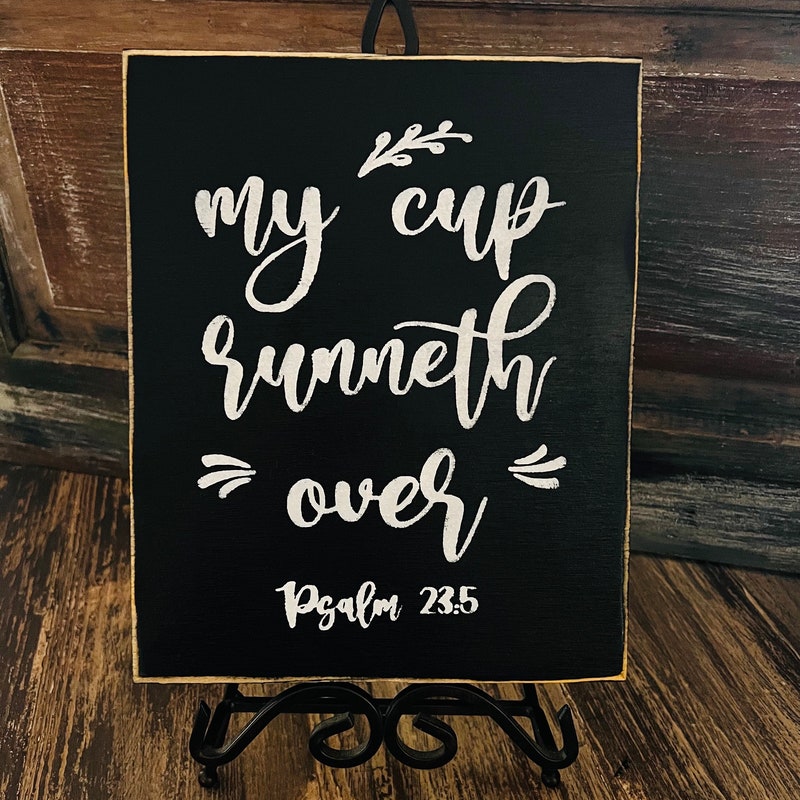 my cup
runneth
over
Psalm 23:5